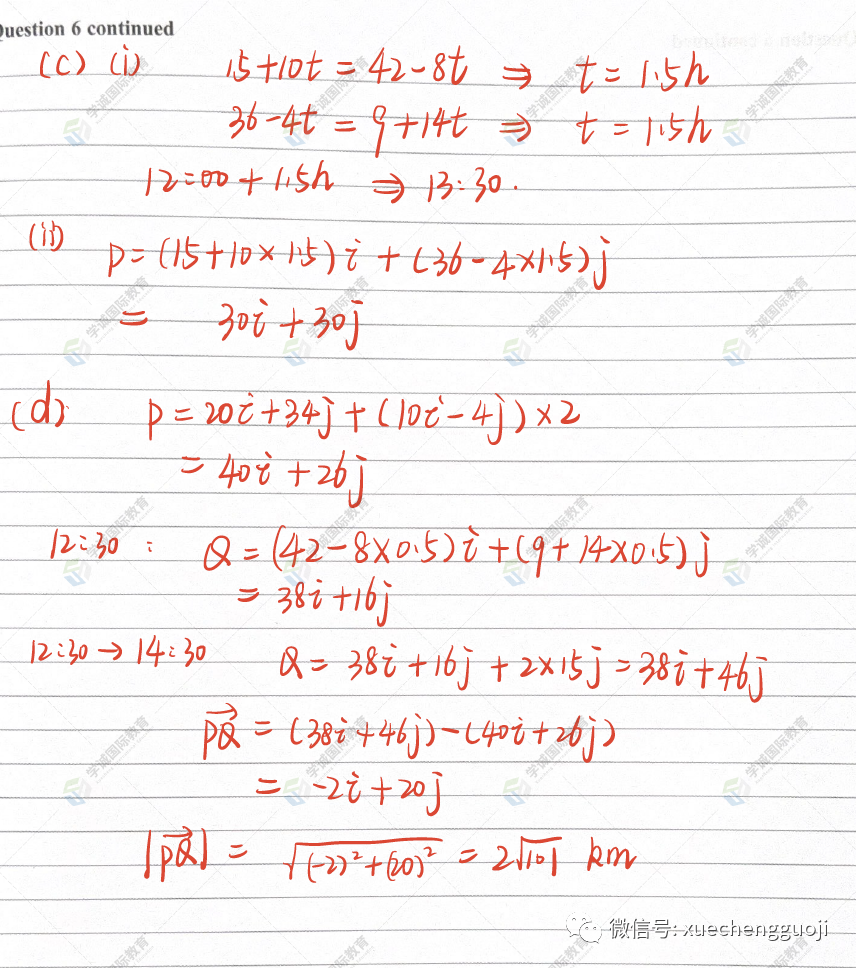 Question 6 continued
(c) (i) 15+10t = 42-8t ⇒ t = 1.5h
36-4t = 9+14t ⇒ t = 1.5h
12:00 + 1.5h ⇒ 13:30.
(ii) p = (15+10×1.5)i + (36-4×1.5)j
= 30i + 30j
(d) p = 20i+34j+(10i-4j)×2
= 40i +26j
12:30 : Q = (42-8×0.5)i+(9+14×0.5)j
= 38i+16j
12:30 → 14:30 Q = 38i+16j + 2×15j = 38i+46j
→PQ = (38i+46j)-(40i+26j)
= -2i+20j
|→PQ| = √(-2)²+(20)² = 2√101 km
学诚国际教育
微信号: xuechengguoji